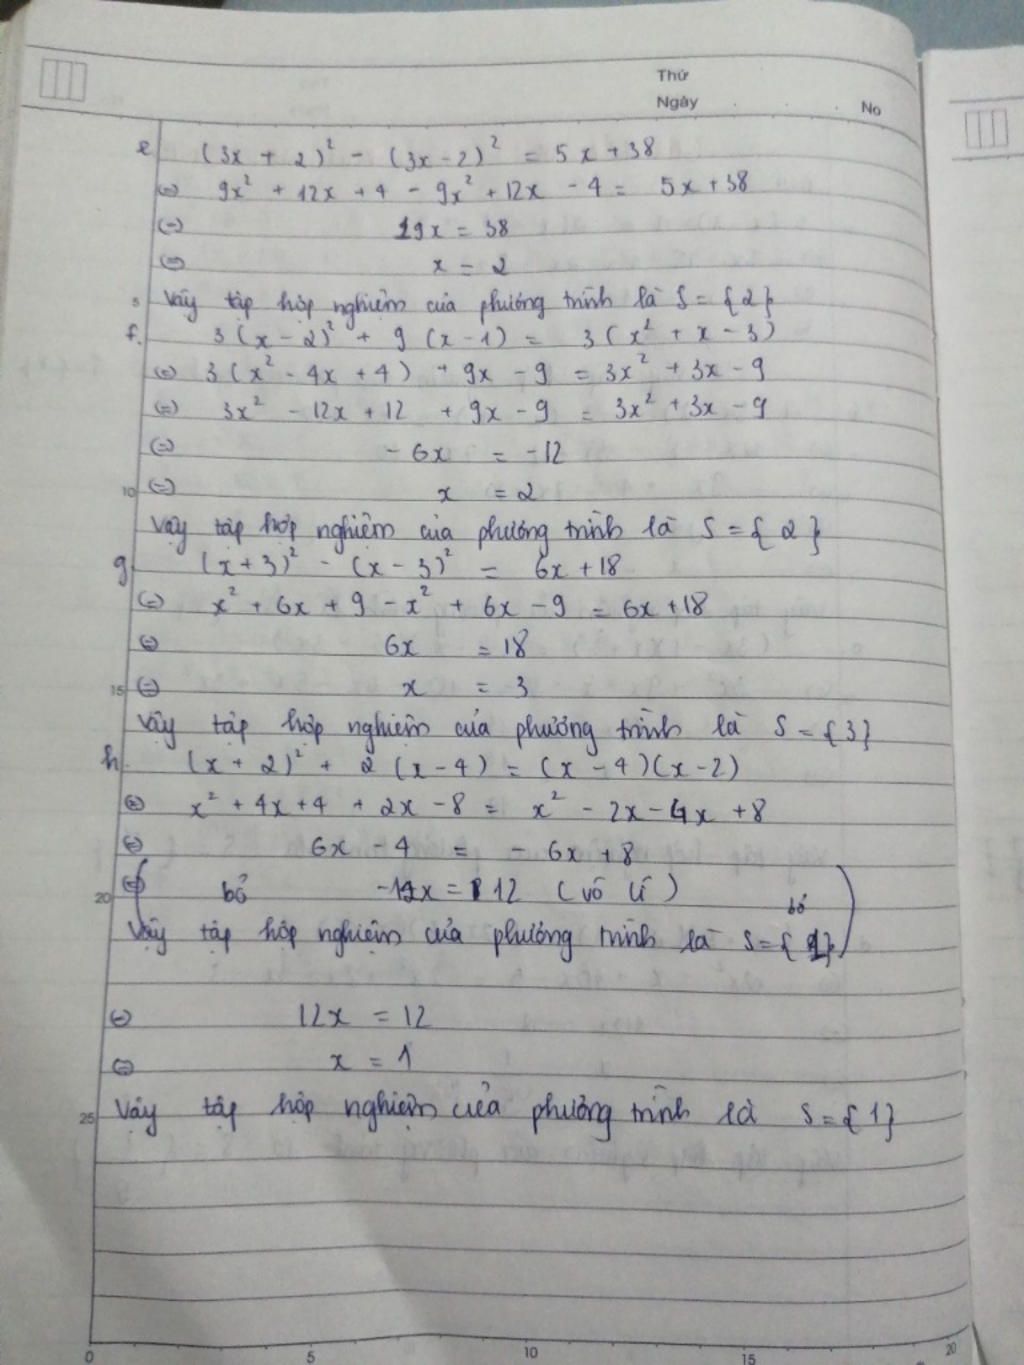 Thứ
Ngày
No
e (3x + 2)² - (3x - 2)² = 5x + 38
(=) 9x² + 12x + 4 - 9x² + 12x - 4 = 5x + 38
(=) 19x = 38
(=) x = 2
5 Vậy tập hợp nghiệm của phương trình là S = {2}
f. 3(x - 2)² + 9(x - 1) = 3(x² + x - 3)
(=) 3(x² - 4x + 4) + 9x - 9 = 3x² + 3x - 9
(=) 3x² - 12x + 12 + 9x - 9 = 3x² + 3x - 9
(=) - 6x = -12
10 (=) x = 2
Vậy tập hợp nghiệm của phương trình là S = {2}
g (x + 3)² - (x - 3)² = 6x + 18
(=) x² + 6x + 9 - x² + 6x - 9 = 6x + 18
(=) 6x = 18
15 (=) x = 3
Vậy tập hợp nghiệm của phương trình là S = {3}
h. (x + 2)² + 2(x - 4) = (x - 4)(x - 2)
(=) x² + 4x + 4 + 2x - 8 = x² - 2x - 4x + 8
(=) 6x - 4 = - 6x + 8
20 (=) bỏ x = 12 (vô lí) bỏ
Vậy tập hợp nghiệm của phương trình là S = {1}
(=) 12x = 12
(=) x = 1
25 Vậy tập hợp nghiệm của phương trình là S = {1}
0 5 10 15 20